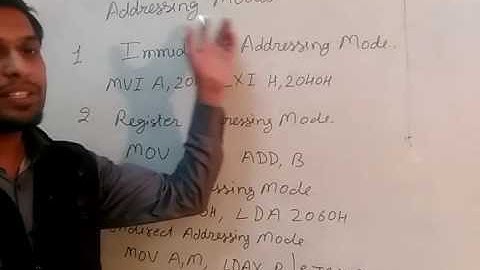 Addressing Modes
1 Immed Addressing Mode.
MVI A, 20 LXI H, 2040H
2 Register ressing Mode.
MOV ADD, B
essing Mode
0H, LDA 2060H
ndirect Addressing Mode
MOV A,M, LDAX